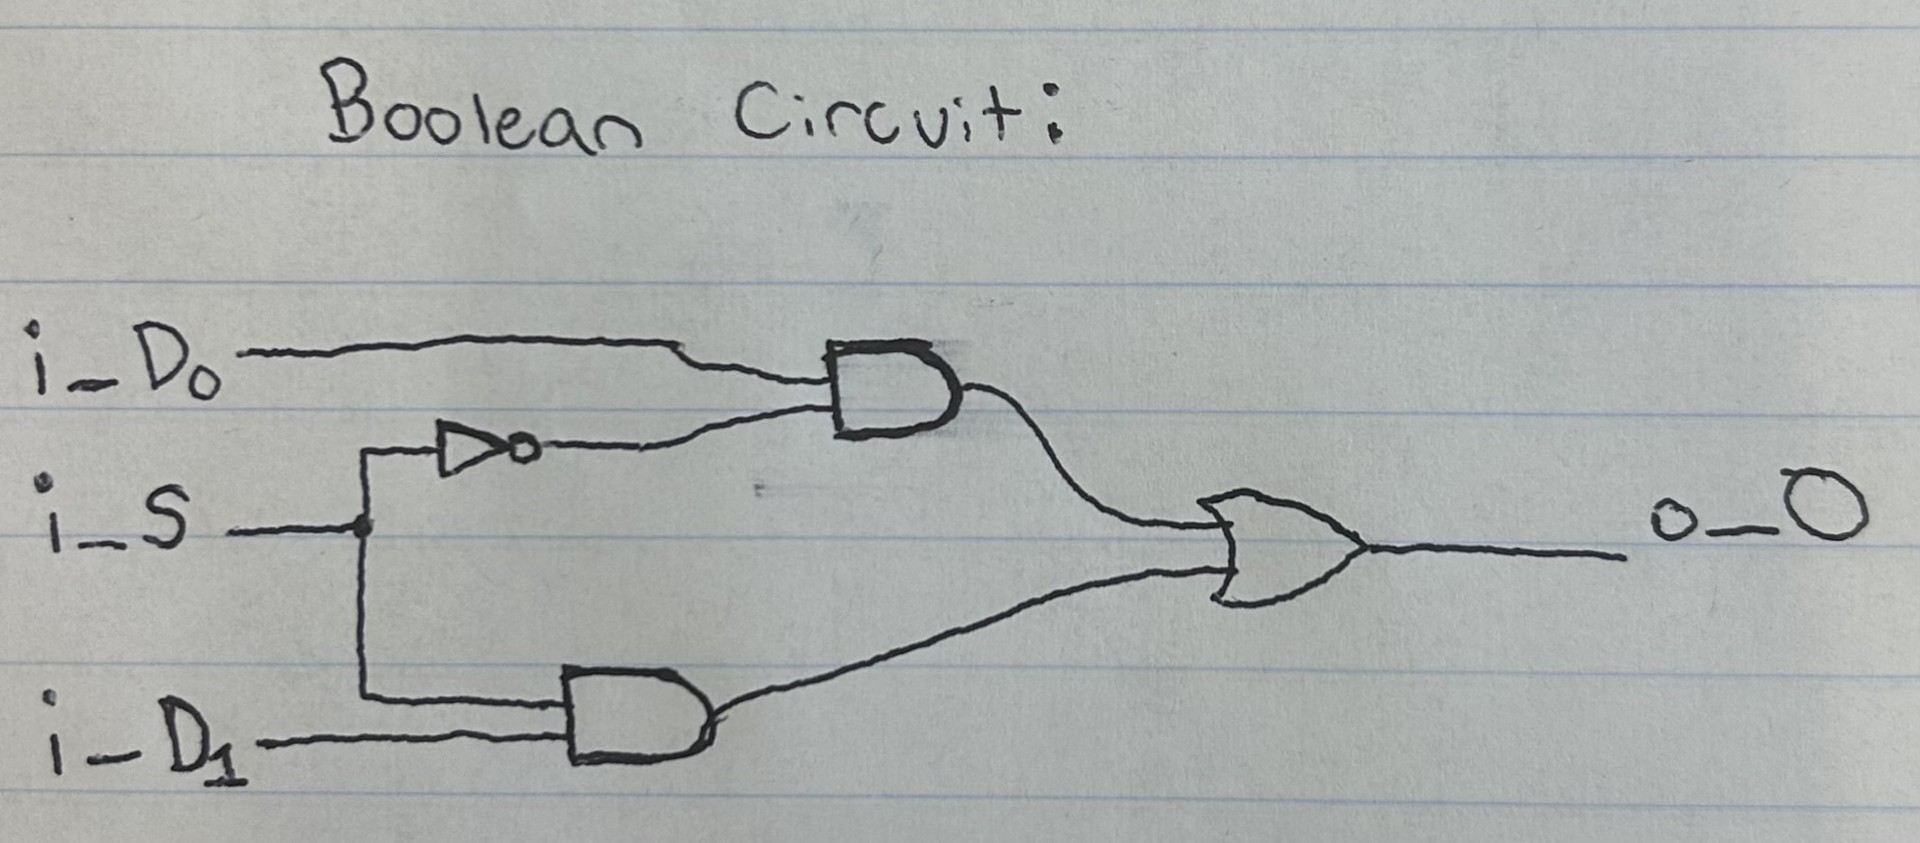 Boolean Circuit:
i_D₀
i_S
o_O
i_D₁